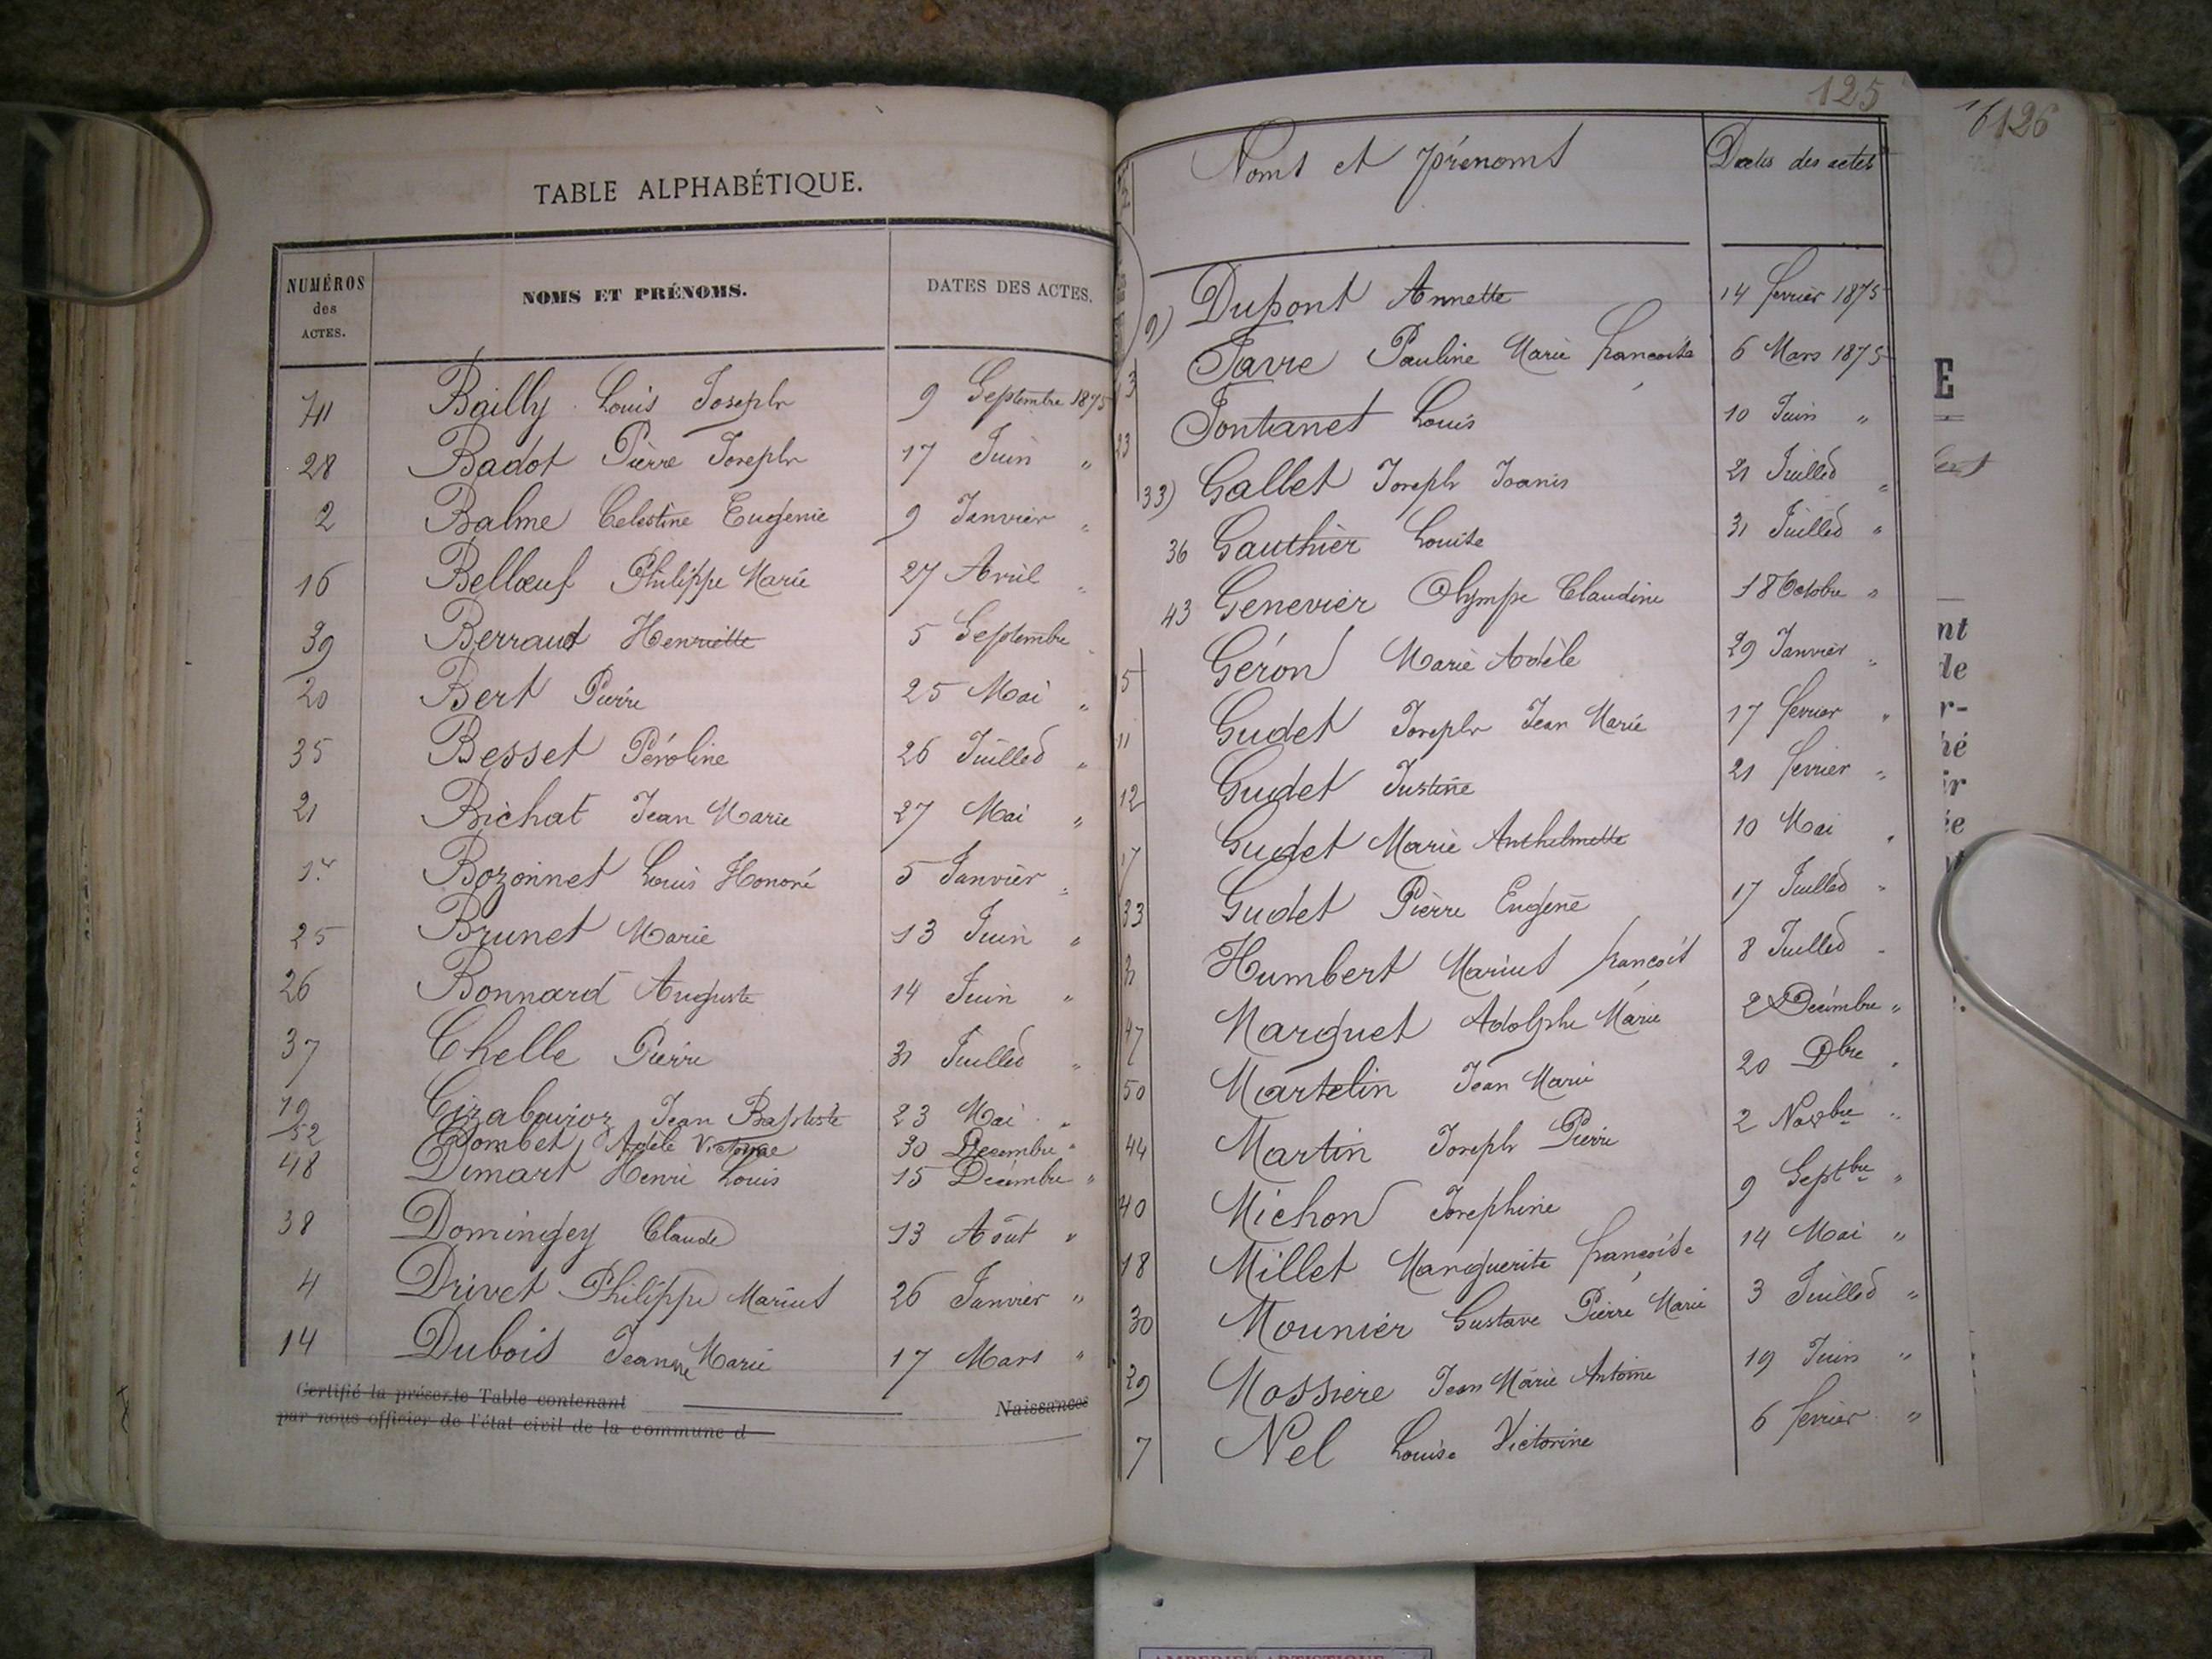 TABLE ALPHABÉTIQUE.
NUMÉROS des ACTES. NOMS ET PRÉNOMS. DATES DES ACTES.
41 Bailly Louis Joseph 9 Septembre 1875
28 Badot Pierre Joseph 17 Juin "
2 Balme Celestine Eugenie 9 Janvier "
16 Bellœuf Philippe Marie 27 Avril "
39 Berraud Henriette 5 Septembre
20 Bert Pierre 25 Mai "
35 Besset Péroline 26 Juillet "
21 Bichat Jean Marie 27 Mai "
1er Bozonnet Louis Honoré 5 Janvier "
25 Brunet Marie 13 Juin "
26 Bonnard Auguste 14 Juin "
37 Chelle Pierre 31 Juillet "
19 Cizabuiroz Jean Baptiste 23 Mai "
52 Combet Adèle Victorine 30 Decembre "
48 Dimart Henri Louis 15 Décembre "
38 Domingey Claude 13 Août "
4 Drivet Philippe Marius 26 Janvier "
14 Dubois Jeanne Marie 17 Mars "
Certifié la présente Table contenant Naissances
par nous officier de l'état civil de la commune d
125
Noms et prénoms Dates des actes
9) Dupont Annette 14 fevrier 1875
13 Favre Pauline Marie françoise 6 Mars 1875
23 Fontanet Louis 10 Juin "
33) Gallet Joseph Joanis 21 Juillet "
36 Gauthier Louise 31 Juillet "
43 Genevier Olympe Claudine 18 Octobre "
5 Géron Marie Adèle 29 Janvier "
11 Gudet Joseph Jean Marie 17 fevrier "
12 Gudet Justine 21 fevrier "
17 Gudet Marie Anthelmette 10 Mai "
33 Gudet Pierre Eugène 17 Juillet "
31 Humbert Marius françois 8 Juillet "
47 Marguet Adolphe Marie 2 Décembre "
50 Martelin Jean Marie 20 Dbre "
44 Martin Joseph Pierre 2 Novbre "
40 Michon Josephine 9 Septbre "
18 Millet Marguerite françoise 14 Mai "
30 Mounier Gustave Pierre Marie 3 Juillet "
29 Mossiere Jean Marie Antoine 19 Juin "
7 Nel Louise Victorine 6 fevrier "
126
E
nt
de
r-
hé
ir
ée